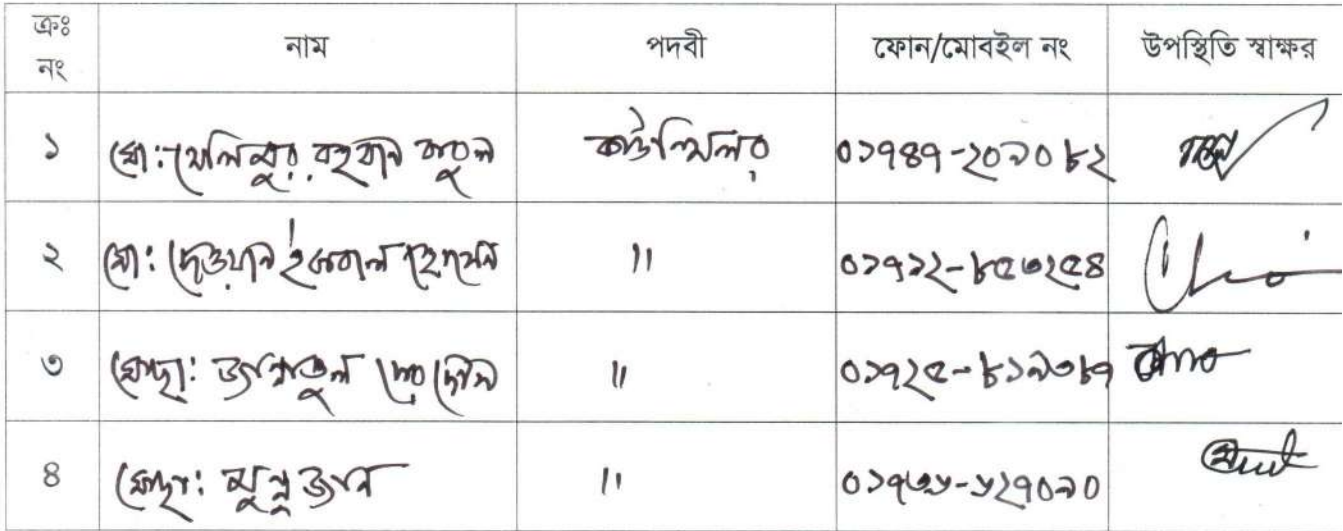 ক্রঃ নং নাম পদবী ফোন/মোবইল নং উপস্থিতি স্বাক্ষর
১ মো: খেলিলুর রহমান বাবুল কাউন্সিলর ০১৭৪৭-২০৯০৮২
২ মো: দেওয়ান ইকবাল হোসেন 〃 ০১৭১২-৮৫৩২৫৪
৩ মোছা: জান্নাতুল ফেরদৌস 〃 ০১৭২৫-৮১৯৩৮৭
৪ মোছা: মুন্নুজান 〃 ০১৭৩৬-৬২৭০৯০